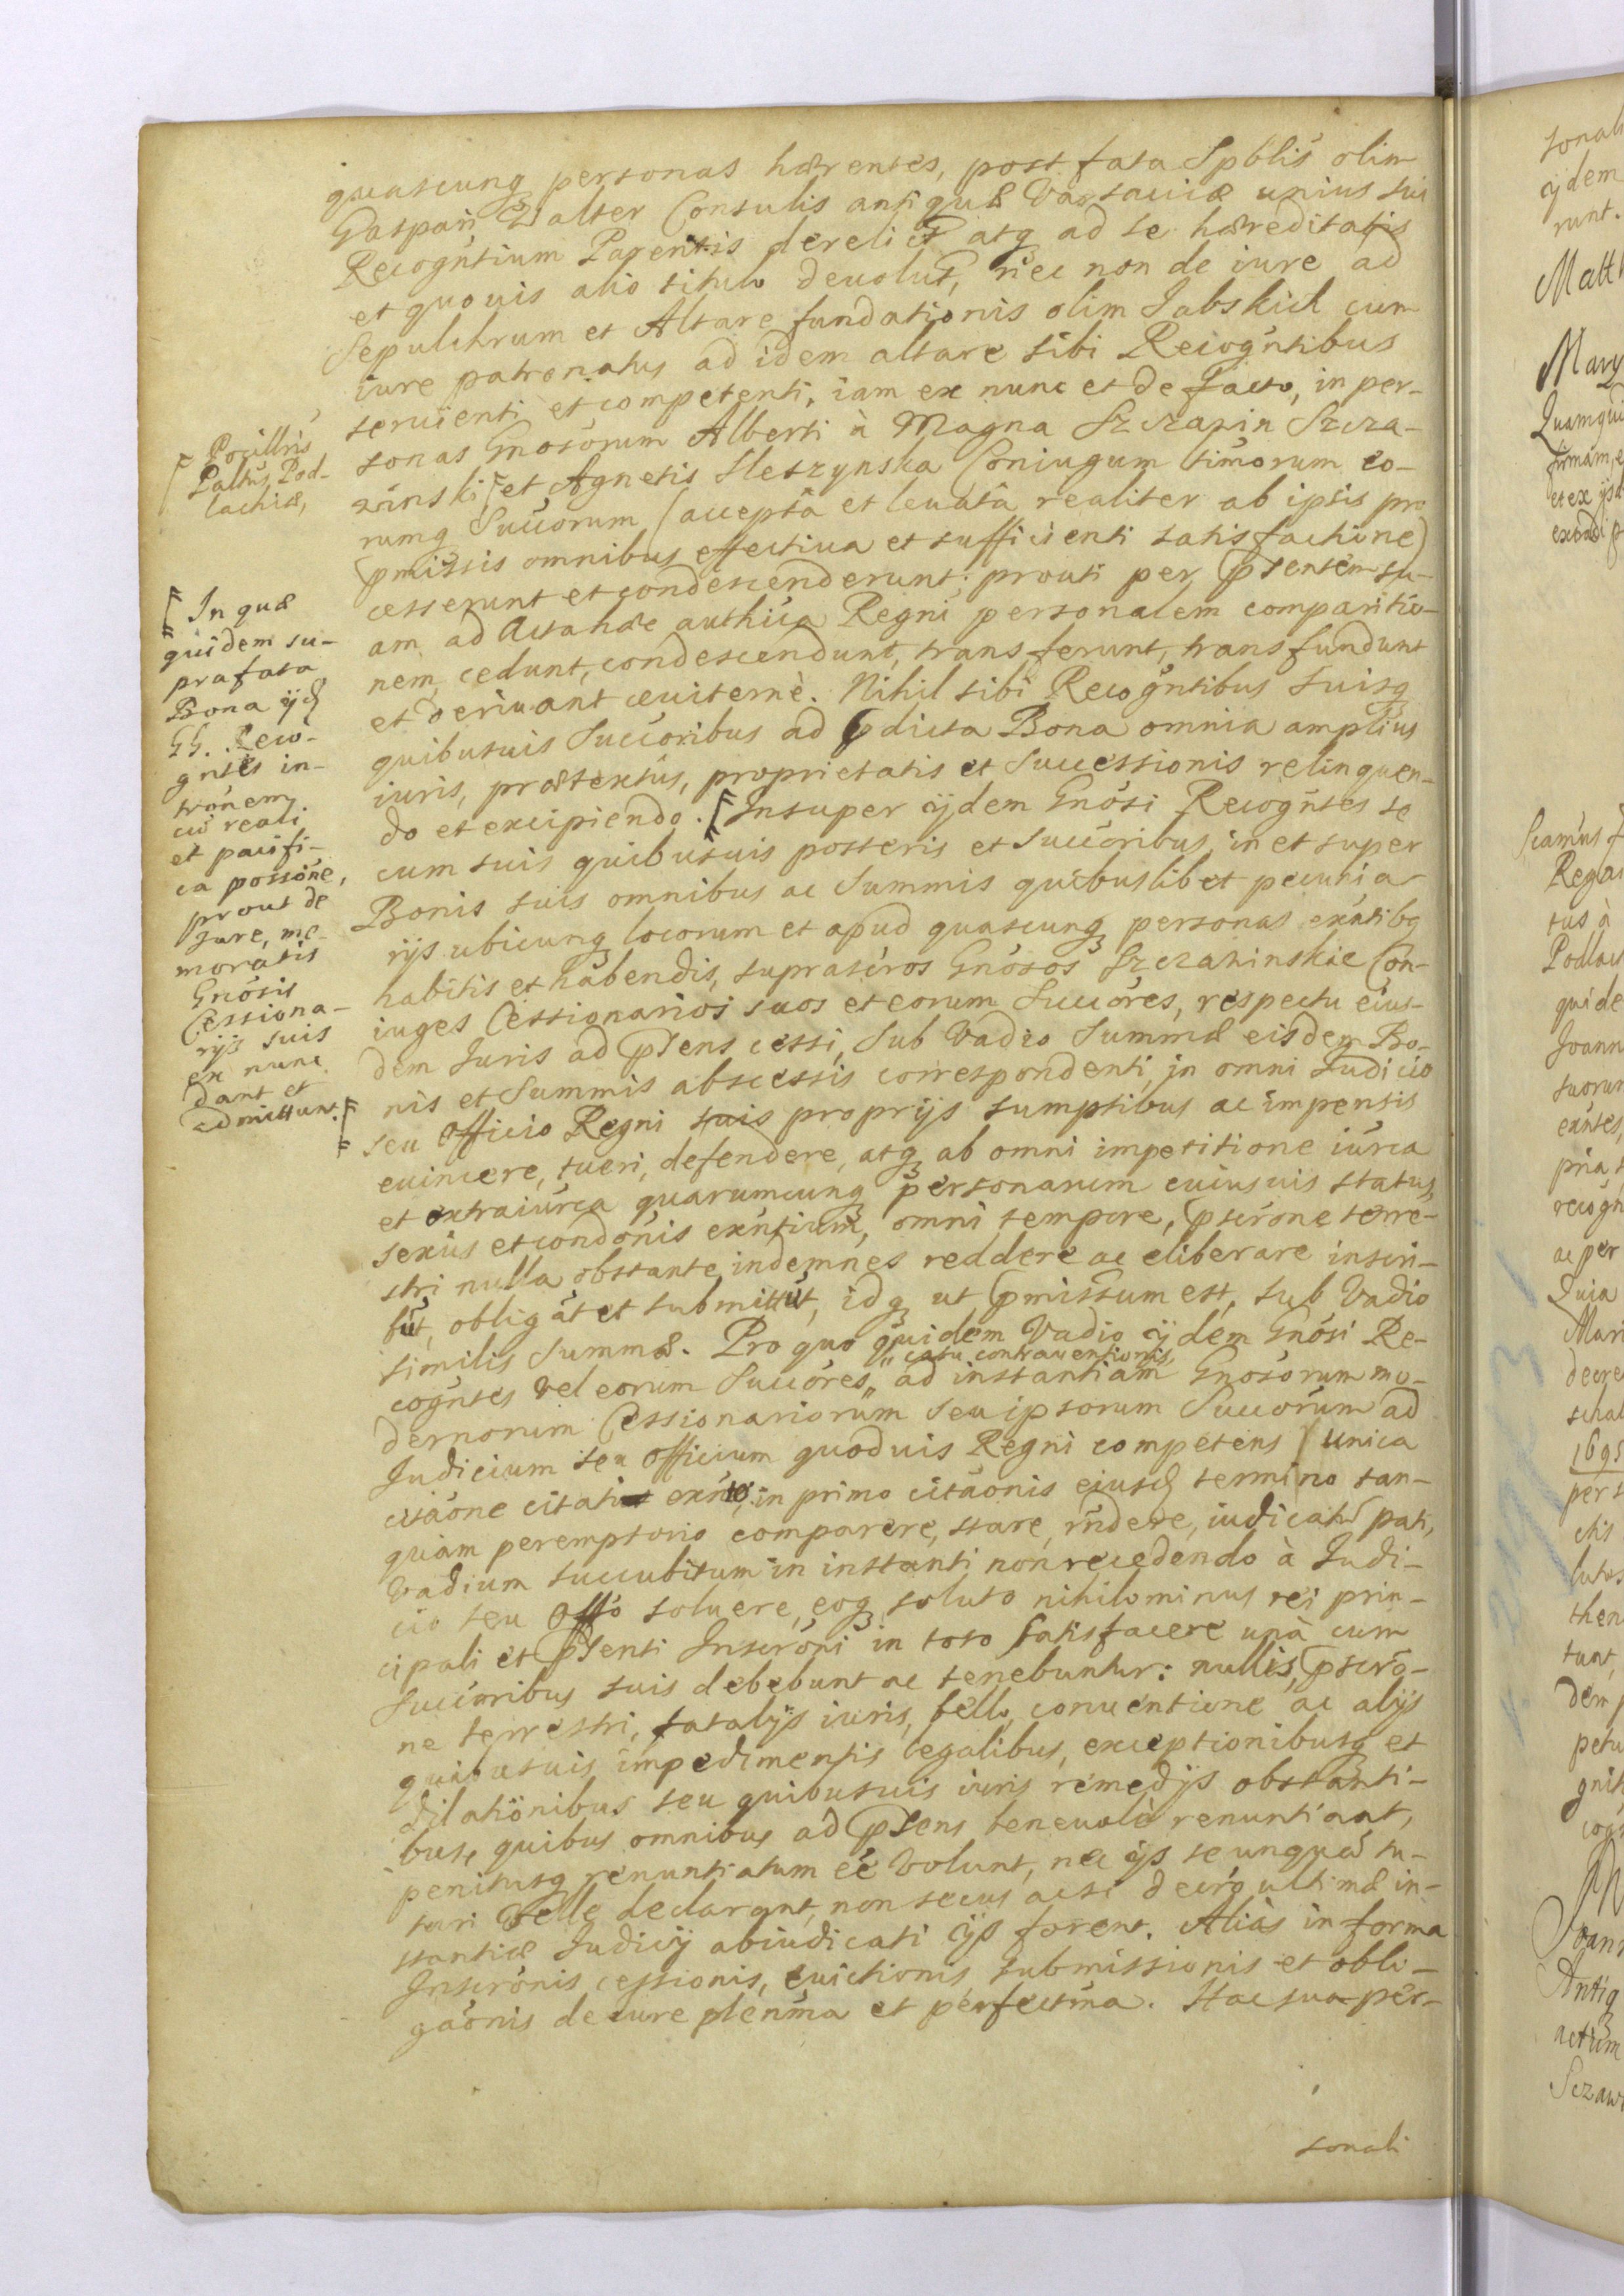 quascunq personas hærentes, post fata Spblis olim
Gaspari Walter Consulis antiquæ Varsaviæ unius sui
Recogntium Parentis derelict atq ad se hæreditatis
et quovis alio titulo devolut, nec non de iure ad
Sepulchrum et Altare fundationis olim Jabskich cum
iure patronatus ad idem altare sibi Recogntibus
serviienti et competenti, iam ex nunc et de facto, in per-
sonas Gnosorum Alberti à Magna Szczazin Szcza-
zinski et Agnetis Sleszynska Coniugum simorum eo-
rumq Succorum (accepta et levata realiter ab ipsis pro
pmissis omnibus effectiva et sufficienti satisfactione)
cesserunt et condescenderunt: prouti per psentem su-
am ad Acta hæc authica Regni personalem comparitio-
nem, cedunt, condescendunt, transferunt, transfundunt
et derivant æviternè. Nihil sibi Recogntibus suisq
quibusuis Succoribus ad pdicta Bona omnia amplius
iuris, prætextus, proprietatis et Successionis relinquen-
do et excipiendo. Insuper ijdem Gnosi Recogntes se
cum suis quibusuis posteris et Succoribus, in et super
Bonis suis omnibus ac Summis quibuslibet pecunia-
rijs ubicunq locorum et apud quascunq personas exntibq
habitis et habendis, suprascros Gnosos Szczazinskie Con-
iuges Cessionarios suos et eorum Succores, respectu eius-
dem Iuris ad psens cessi, Sub Vadio Summæ eisdem Bo-
nis et Summis abscessis correspondenti, in omni Judicio
seu Officio Regni suis proprijs sumptibus ac impensis
evincere, tueri, defendere, atq ab omni impetitione iurca
et extraiurca quarumcunq personarum cuiusuis status,
sexus et condonis exntium, omni tempore, pscrone terre-
stri nulla obstante, indemnes reddere ac eliberare inscri-
but, obligat et submittut, idq ut pmissum est, sub Vadio
similis Summæ. Pro quo quidem Vadio ijdem Gnosi Re-
casu contraventionis
cogntes vel eorum Succores, ad instantiam Gnosorum mo-
dernorum Cessionariorum seu ipsorum Succorum ad
Judicium seu Officium quoduis Regni competens unica
citaone citati exntes, in primo citaonis eiusd termino tan-
quam peremptorio comparere, stare, rndere, iudicatu pati,
Vadium succubitum in instanti non recedendo à Judi-
cio seu Offo soluere, eoq soluto nihilominus rei prin-
cipali et psenti Inscroni in toto satisfacere unà cum
Succoribus suis debebunt ac tenebuntur: nullis, pscro-
ne terrestri, fatalijs iuris, bello, conventione ac alijs
quibusuis impedimentis legalibus, exceptionibusq et
dilationibus seu quibusuis iuris remedijs obstanti-
bus, quibus omnibus ad psens benevolè renuntiant,
penitusq renuntiatum eé volunt, nec ijs se unqua tu-
turi velle declarant, non secus ac si decro ultimæ in-
stantiæ Judicij abiudicati ijs forent. Aliàs in forma
Inscronis cessionis, evictionis submissionis et obli-
gaonis de iure plenma et perfectma. Hac sua per-
sonali
Pocillris
Paltus Pod-
lachiæ,
In quæ
quidem su-
prafata
Bona ijd
GG. Reco-
gntes in-
tronem
cu reali
et pacifi-
ca possone,
prout de
Jure, me-
moratis
Gnosis
Cessiona-
rijs suis
ex nunc
dant et
admittunt.
sonali
ijdem
runt.
Matth
Mary
Quamqui
firmam, e
et ex ijsd
Regal
tus à
quide
Joann
suorum
exntes,
pria
recogn
ac per
Quia
Mari
decre
1695
per
ctis
then
dem p
petu
Joann
Antiq
actum
Sczaw